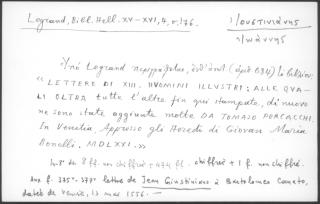 Legrand, Bibl. Hell. XV-XVI, 4, σ. 176. Ἰουστινιάνης
Ἰωάννης
Legrand περιγράφεται,
« LETTERE DI XIII. HVOMINI ILLVSTRI; ALLE QVA-
LI OLTRA tutte l'altre fin qui stampate, di nuovo
ne sono state aggiunte molte DA TOMASO PORCACCHI.
In Venetia, Appresso gli Heredi di Giovan Maria
Bonelli, MDLXXI.»
In-8° de 8 ff. non chiffré + 474 ff. chiffré + 1 f. non chiffré.
Aux f. 375°-377° lettre de Jean Giustiniano à Bartolomeo Caneto,
datée de Venise, 13 mai 1556. —